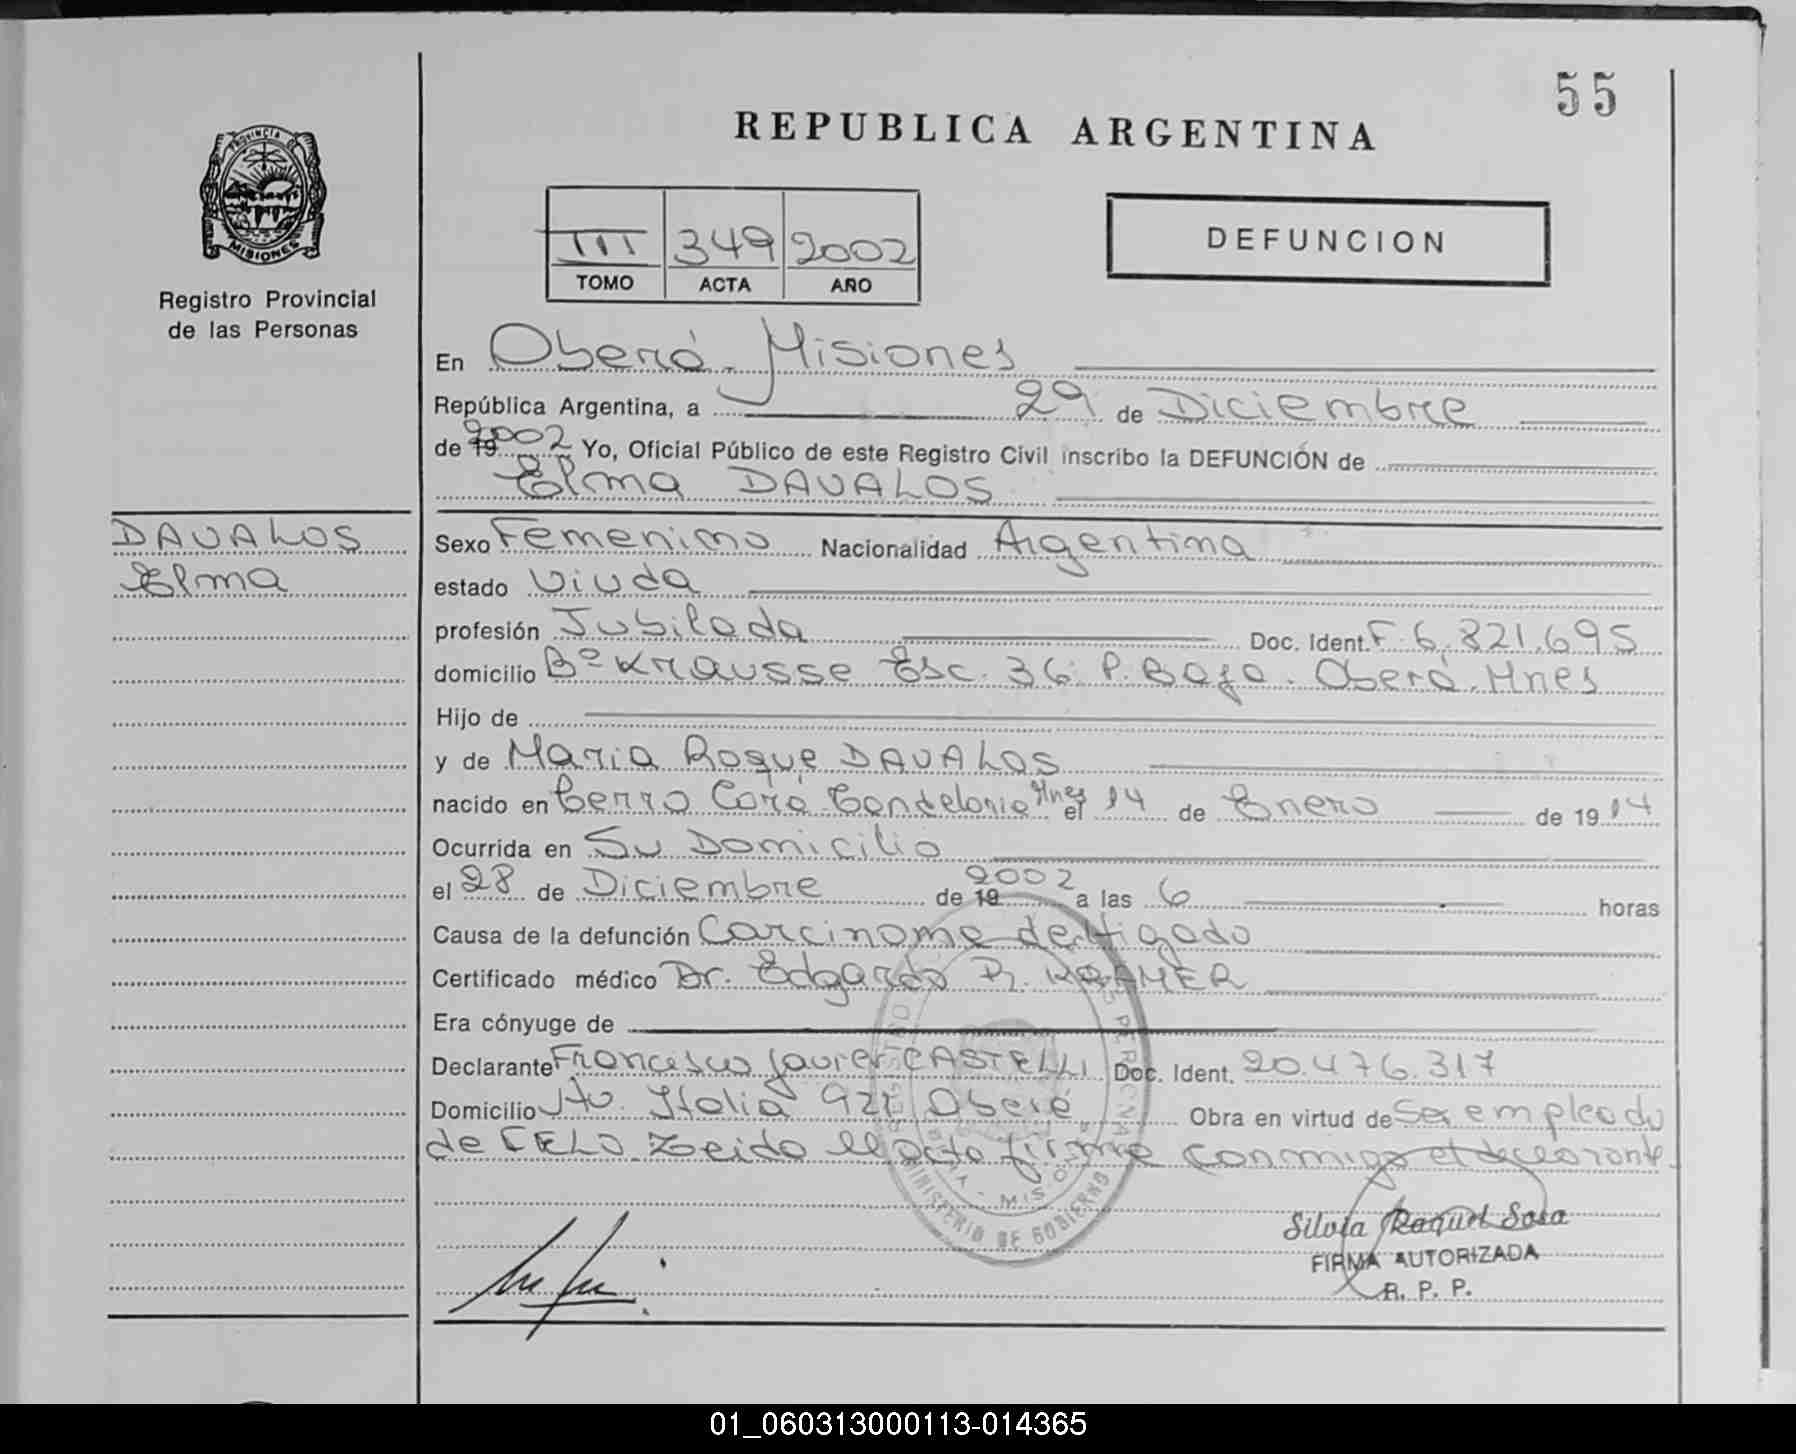 55
REPUBLICA ARGENTINA
PROVINCIA DE
MISIONES
Registro Provincial
de las Personas
III 349 2002
TOMO ACTA AÑO
DEFUNCION
En Oberá - Misiones
República Argentina, a 29 de Diciembre
de 19 2002 Yo, Oficial Público de este Registro Civil inscribo la DEFUNCIÓN de
Elma DAVALOS
DAVALOS
Elma
Sexo Femenino Nacionalidad Argentina
estado Viuda
profesión Jubilada Doc. Ident. F. 6.821.695
domicilio Bº Krausse Esc. 36. P. Baja. Oberá. Mnes
Hijo de
y de Maria Roque DAVALOS
nacido en Cerro Corá Candelaria Mnes el 14 de Enero de 19 14
Ocurrida en Su Domicilio
el 28 de Diciembre de 19 2002 a las 6 horas
Causa de la defunción Carcinoma de Higado
Certificado médico Dr. Edgardo R. KRAMER
Era cónyuge de
Declarante Francisco Javier CASTELLI Doc. Ident. 20.476.317
Domicilio Av. Italia Oberá Obra en virtud de Ser empleado
de CELO. Leida el acta firma conmigo el declarante.
MINISTERIO DE GOBIERNO
Silvia Raquel Sosa
FIRMA AUTORIZADA
R. P. P.
01_060313000113-014365